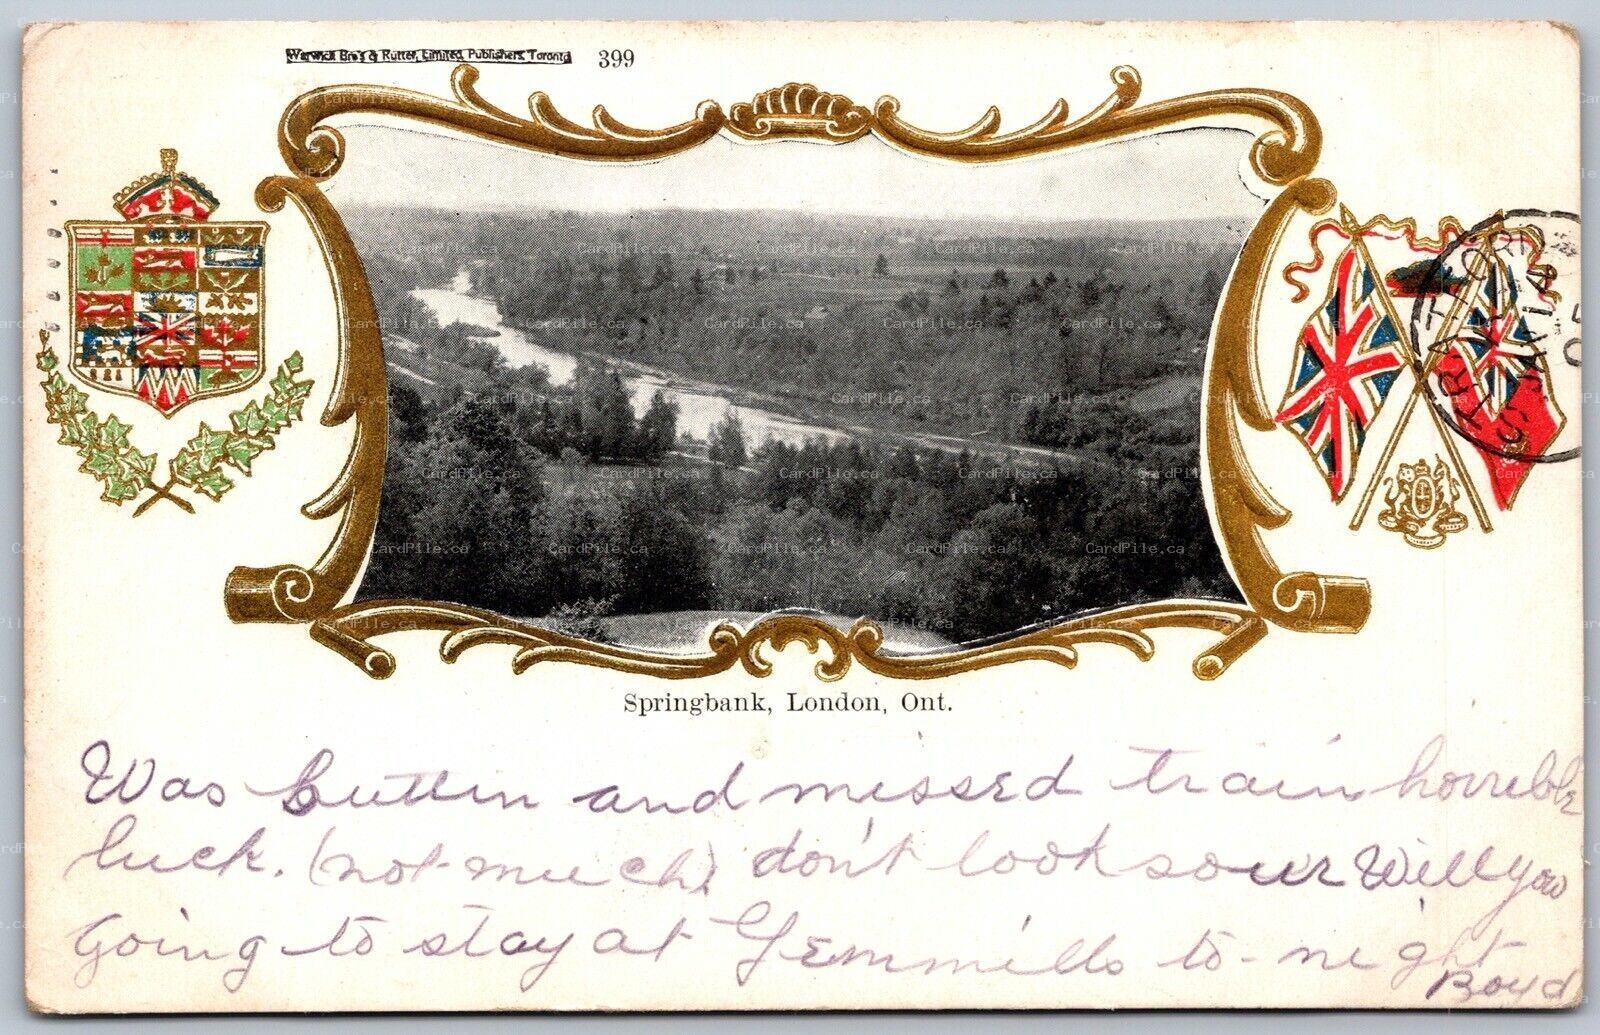 Warwick Bro's & Rutter, Limited, Publishers, Toronto 399
STRATFORD
CANADA
JA 14
05
Springbank, London, Ont.
Was buttin and missed train horrible
luck. (not much) don't look sour Will you
going to stay at Gemmills to-night
Boyd
CardPile.ca